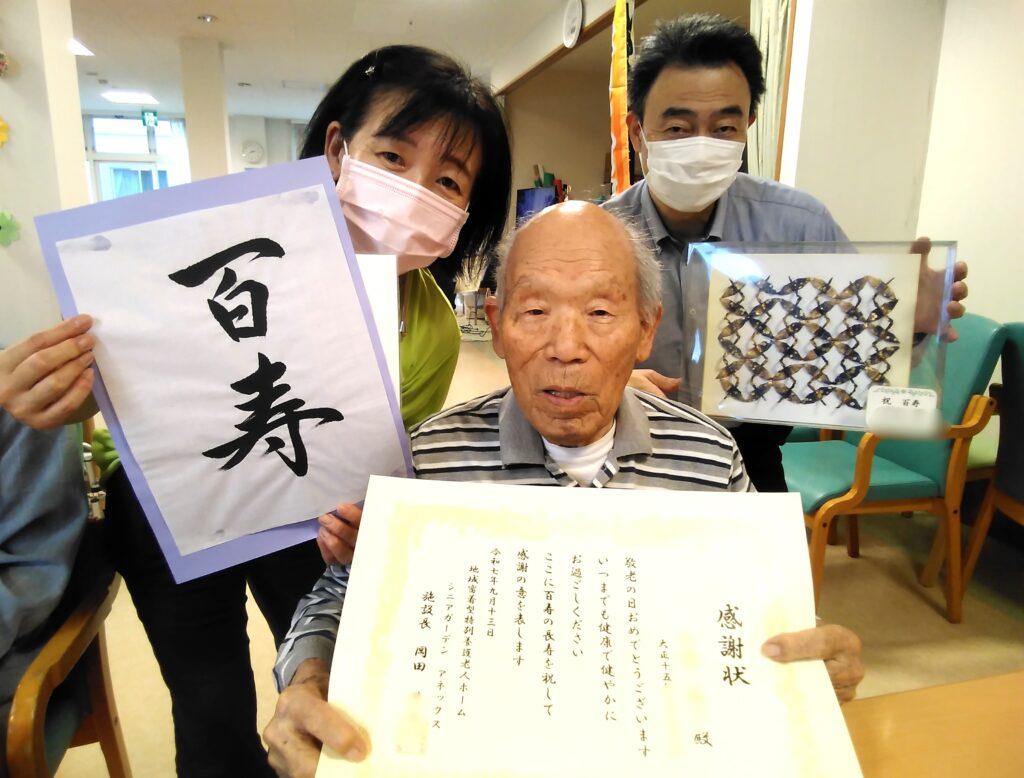 百寿
祝 百寿
感謝状
大正十五.
殿
敬老の日おめでとうございます
いつまでも健康で健やかに
お過ごしください
ここに百寿の長寿を祝して
感謝の意を表します
令和七年九月十三日
地域密着型特別養護老人ホーム
シニアガーデン アネックス
施設長 岡田